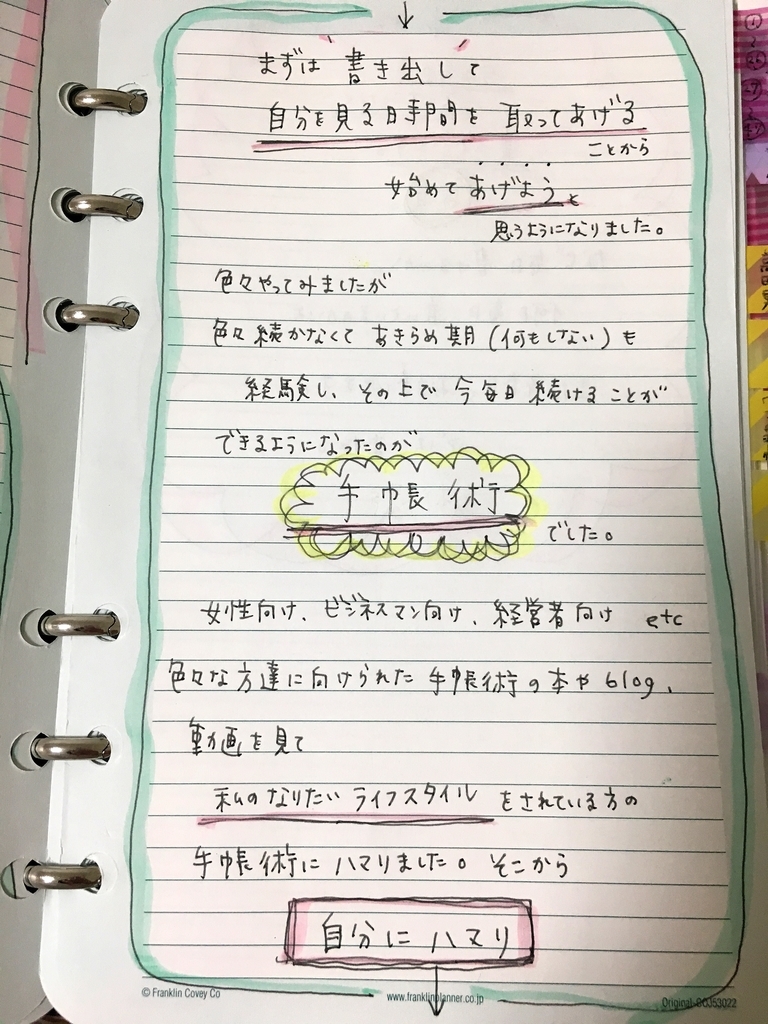 まずは 書き出して
自分を見る時間を 取ってあげる
ことから
始めて あげようと
思うようになりました。
色々やってみましたが
色々続かなくて あきらめ期(何もしない)も
経験し、その上で 今毎日続けることが
できるようになったのが
手帳術
でした。
女性向け、ビジネスマン向け、経営者向け etc
色々な方達に向けられた 手帳術の本やblog、
動画を見て
私のなりたいライフスタイル をされている方の
手帳術に ハマりました。そこから
自分に ハマり
© Franklin Covey Co
www.franklinplanner.co.jp